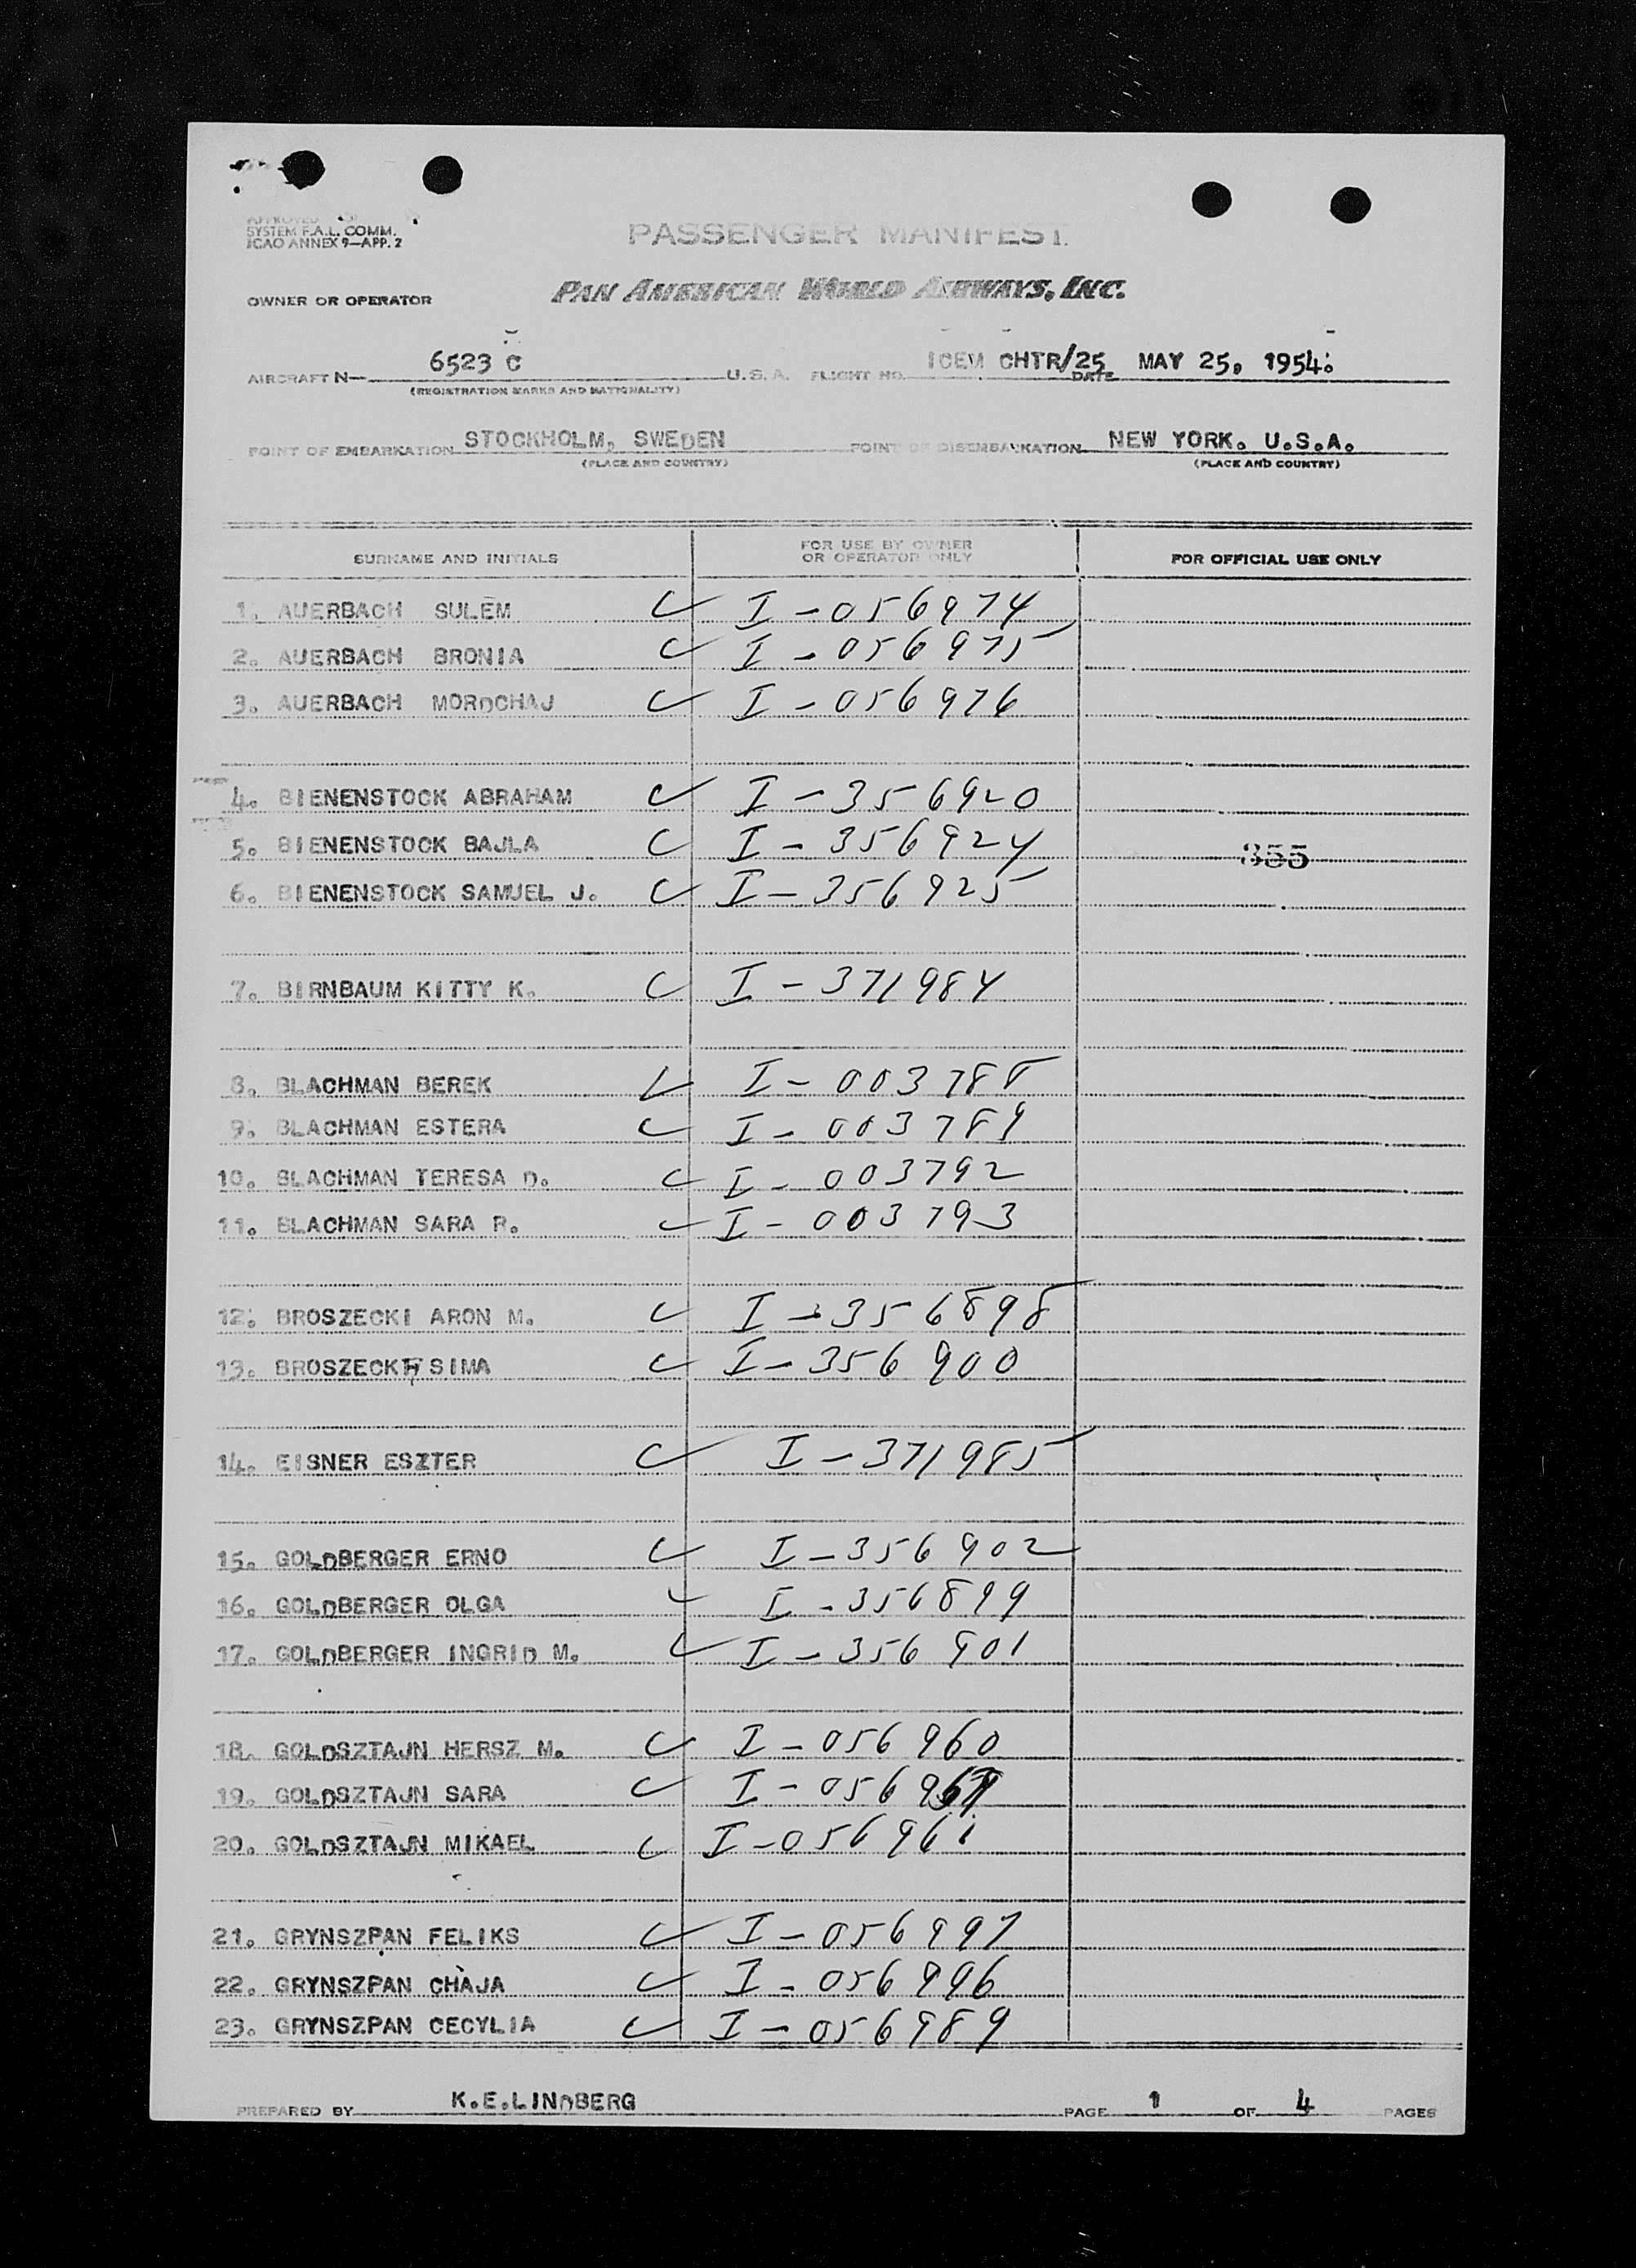 APPROVED
SYSTEM F.A.L. COMM.
ICAO ANNEX 9—APP. 2
PASSENGER MANIFEST
OWNER OR OPERATOR PAN AMERICAN WORLD AIRWAYS, INC.
AIRCRAFT N— 6523 C U.S.A. FLIGHT NO. ICEM CHTR/25 DATE MAY 25, 1954.
(REGISTRATION MARKS AND NATIONALITY)
POINT OF EMBARKATION STOCKHOLM, SWEDEN POINT OF DISEMBARKATION NEW YORK. U.S.A.
(PLACE AND COUNTRY) (PLACE AND COUNTRY)
SURNAME AND INITIALS FOR USE BY OWNER OR OPERATOR ONLY FOR OFFICIAL USE ONLY
1. AUERBACH SULEM I-056974
2. AUERBACH BRONIA I-056975
3. AUERBACH MORDCHAJ I-056976
4. BIENENSTOCK ABRAHAM I-356920
5. BIENENSTOCK BAJLA I-356924 355
6. BIENENSTOCK SAMUEL J. I-356925
7. BIRNBAUM KITTY K. I-371984
8. BLACHMAN BEREK I-003788
9. BLACHMAN ESTERA I-003789
10. BLACHMAN TERESA D. I-003792
11. BLACHMAN SARA R. I-003793
12. BROSZECKI ARON M. I-356898
13. BROSZECKI SIMA I-356900
14. EISNER ESZTER I-371985
15. GOLDBERGER ERNO I-356902
16. GOLDBERGER OLGA I-356899
17. GOLDBERGER INGRID M. I-356901
18. GOLDSZTAJN HERSZ M. I-056960
19. GOLDSZTAJN SARA
20. GOLDSZTAJN MIKAEL I-056961
21. GRYNSZPAN FELIKS I-056997
22. GRYNSZPAN CHAJA I-056996
23. GRYNSZPAN CECYLIA I-056989
PREPARED BY K.E.LINDBERG PAGE 1 OF 4 PAGES